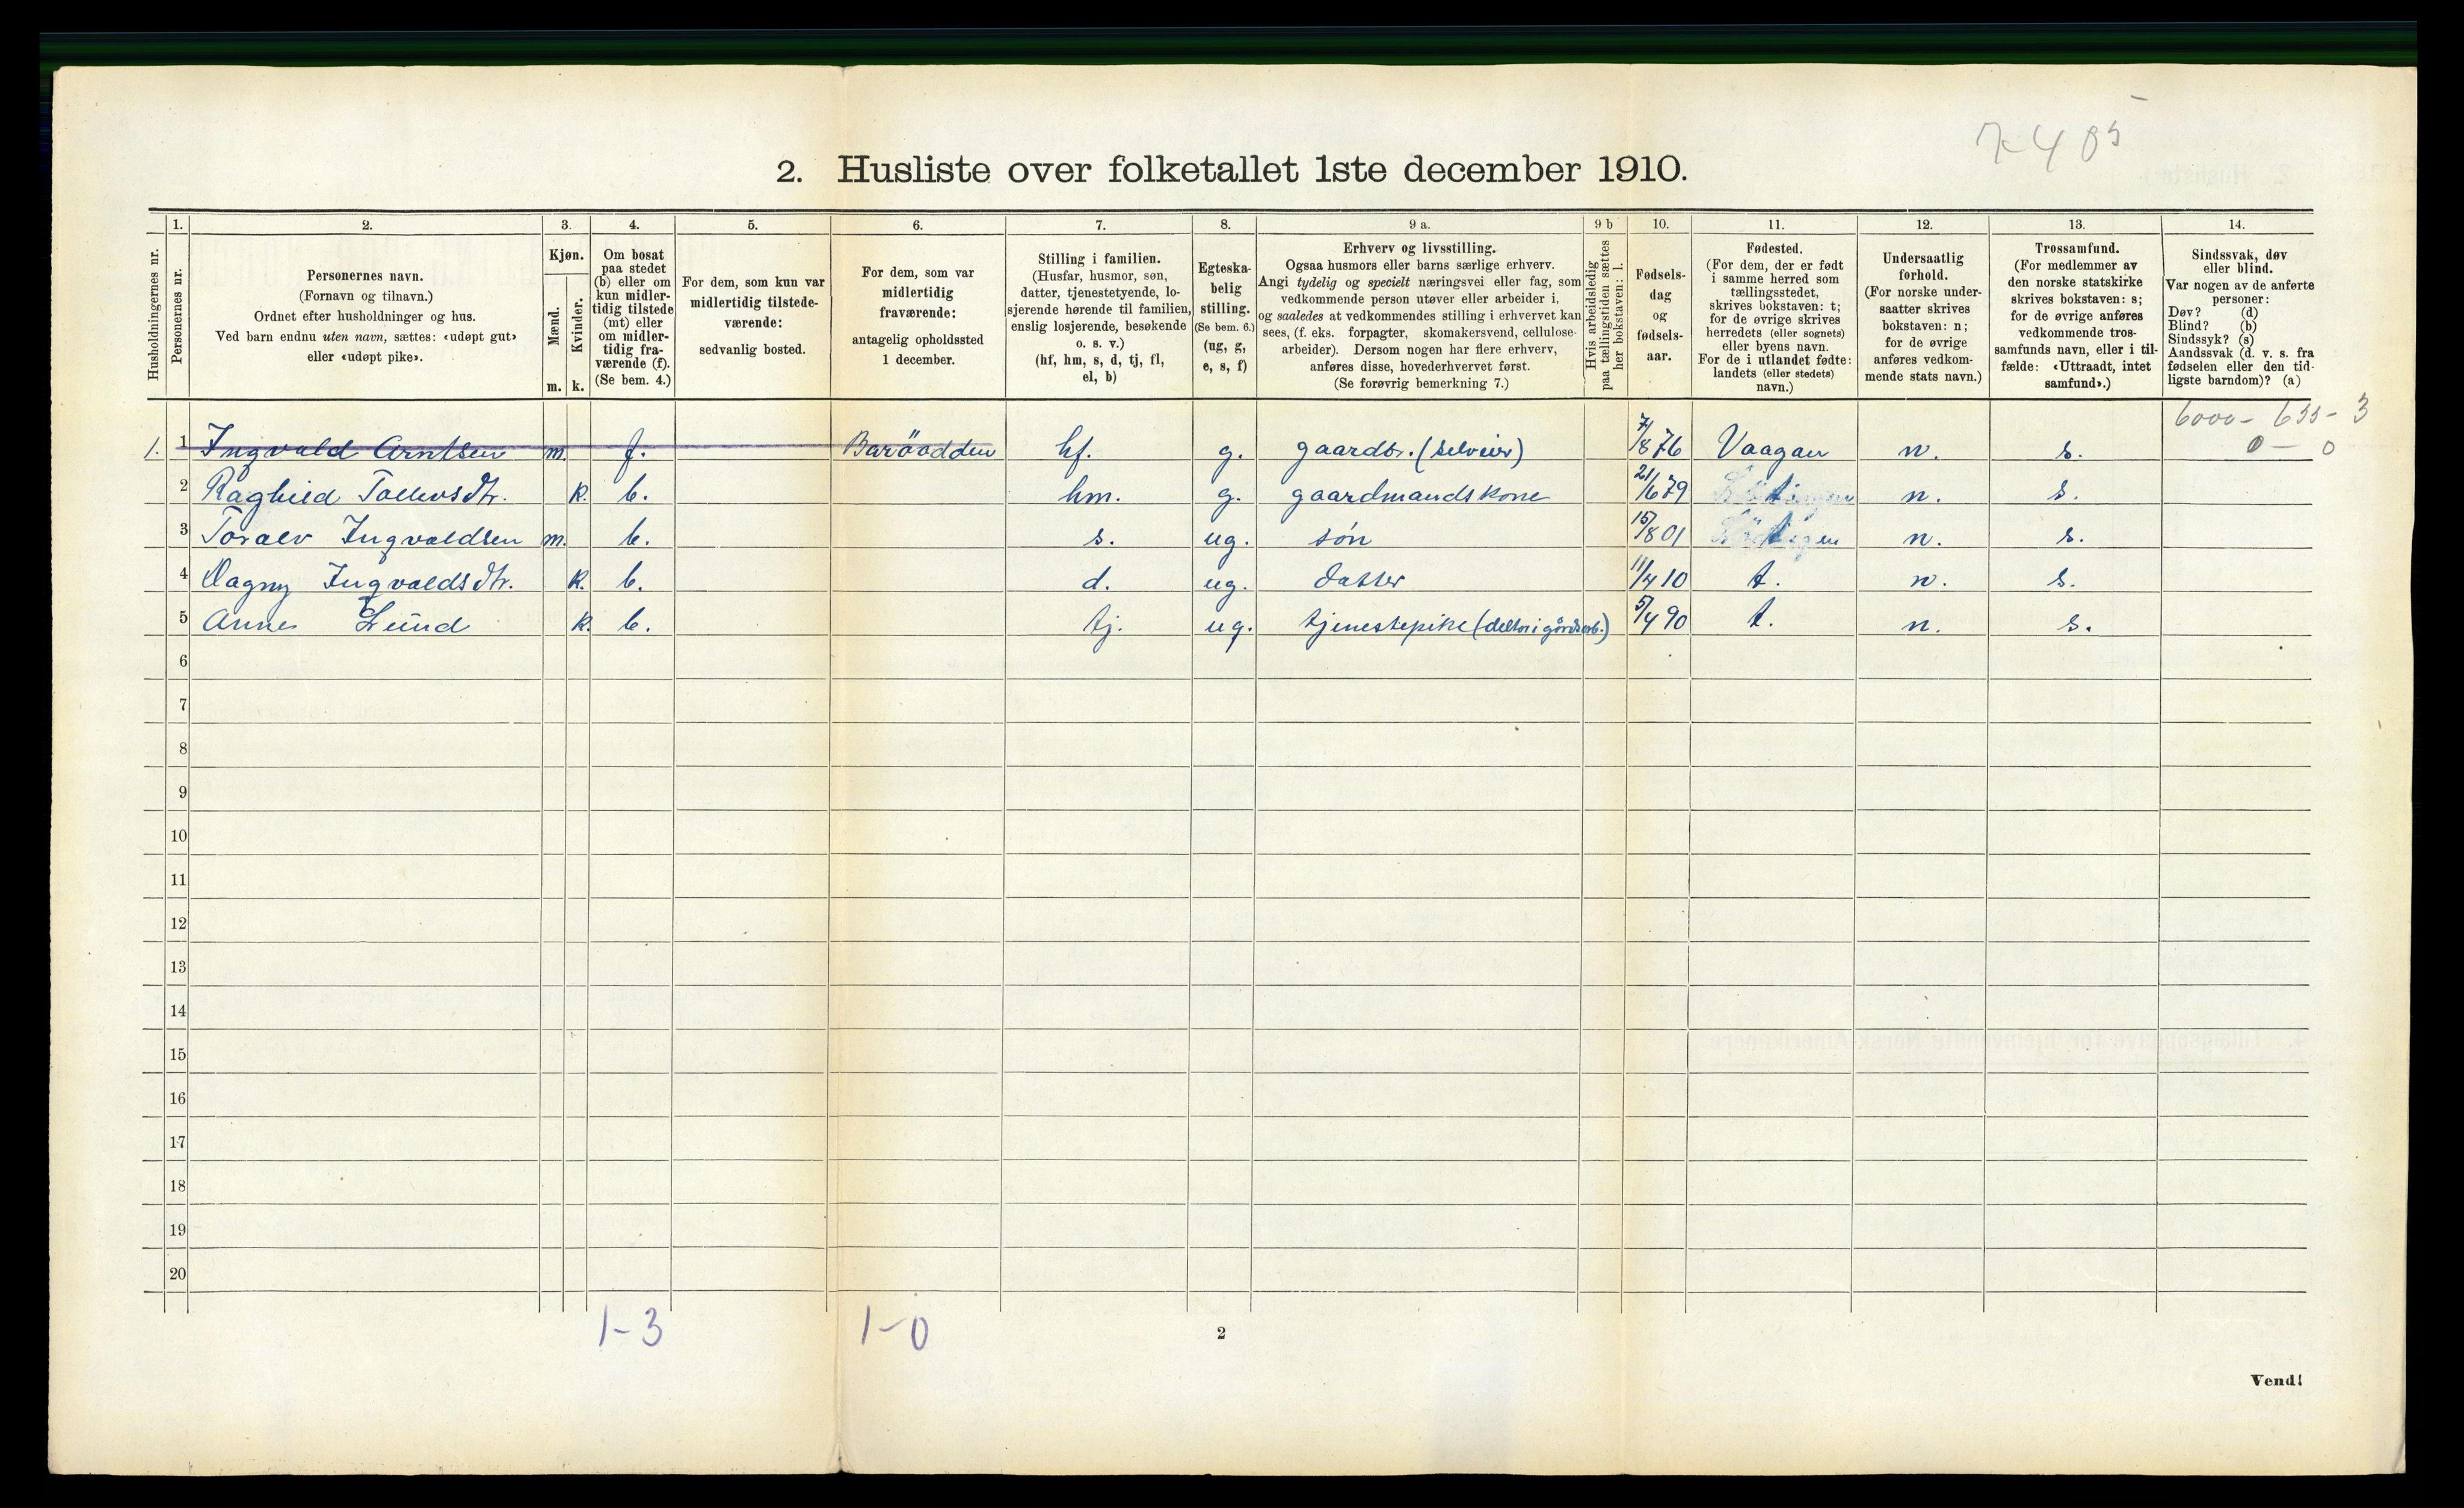 7-405
2. Husliste over folketallet 1ste december 1910.
1. 2. 3. 4. 5. 6. 7. 8. 9 a. 9 b 10. 11. 12. 13. 14.
Husholdningernes nr.
Personernes nr.
Personernes navn.
(Fornavn og tilnavn.)
Ordnet efter husholdninger og hus.
Ved barn endnu uten navn, sættes: «udøpt gut»
eller «udøpt pike».
Kjøn.
Mænd.
Kvinder.
m. k.
Om bosat
paa stedet
(b) eller om
kun midler-
tidig tilstede
(mt) eller
om midler-
tidig fra-
værende (f).
(Se bem. 4.)
For dem, som kun var
midlertidig tilstede-
værende:
sedvanlig bosted.
For dem, som var
midlertidig
fraværende:
antagelig opholdssted
1 december.
Stilling i familien.
(Husfar, husmor, søn,
datter, tjenestetyende, lo-
sjerende hørende til familien,
enslig losjerende, besøkende
o. s. v.)
(hf, hm, s, d, tj, fl,
el, b)
Egteska-
belig
stilling.
(Se bem. 6.)
(ug, g,
e, s, f)
Erhverv og livsstilling.
Ogsaa husmors eller barns særlige erhverv.
Angi tydelig og specielt næringsvei eller fag, som
vedkommende person utøver eller arbeider i,
og saaledes at vedkommendes stilling i erhvervet kan
sees, (f. eks. forpagter, skomakersvend, cellulose-
arbeider). Dersom nogen har flere erhverv,
anføres disse, hovederhvervet først.
(Se forøvrig bemerkning 7.)
Hvis arbeidsledig
paa tællingstiden sættes
her bokstaven: l.
Fødsels-
dag
og
fødsels-
aar.
Fødested.
(For dem, der er født
i samme herred som
tællingsstedet,
skrives bokstaven: t;
for de øvrige skrives
herredets (eller sognets)
eller byens navn.
For de i utlandet fødte:
landets (eller stedets)
navn.)
Undersaatlig
forhold.
(For norske under-
saatter skrives
bokstaven: n;
for de øvrige
anføres vedkom-
mende stats navn.)
Trossamfund.
(For medlemmer av
den norske statskirke
skrives bokstaven: s;
for de øvrige anføres
vedkommende tros-
samfunds navn, eller i til-
fælde: «Uttraadt, intet
samfund».)
Sindssvak, døv
eller blind.
Var nogen av de anførte
personer:
Døv? (d)
Blind? (b)
Sindssyk? (s)
Aandssvak (d. v. s. fra
fødselen eller den tid-
ligste barndom)? (a)
6000 - 655 - 3
0 - 0
1. 1 Ingvald Arntsen m. f. Barøodden hf. g. gaardbr. (selveier) 7/8 76 Vaagan n. s.
2 Raghild Tollevsdtr. k. b. hm. g. gaardmandskone 21/6 79 t n. s.
3 Toralv Ingvaldsen m. b. s. ug. søn 15/8 01 t n. s.
4 Dagny Ingvaldsdtr. k. b. d. ug. datter 11/4 10 t. n. s.
5 Anne Lund k. b. tj. ug. tjenestepike (deltar i gårdsarb.) 5/4 90 t. n. s.
6
7
8
9
10
11
12
13
14
15
16
17
18
19
20
1-3 1-0
2
Vend!